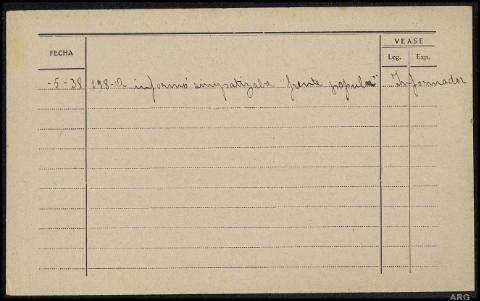 VEASE
FECHA Leg. Exp.
-5-38 198-a informó simpatizaba "frente popular" Informador
ARG